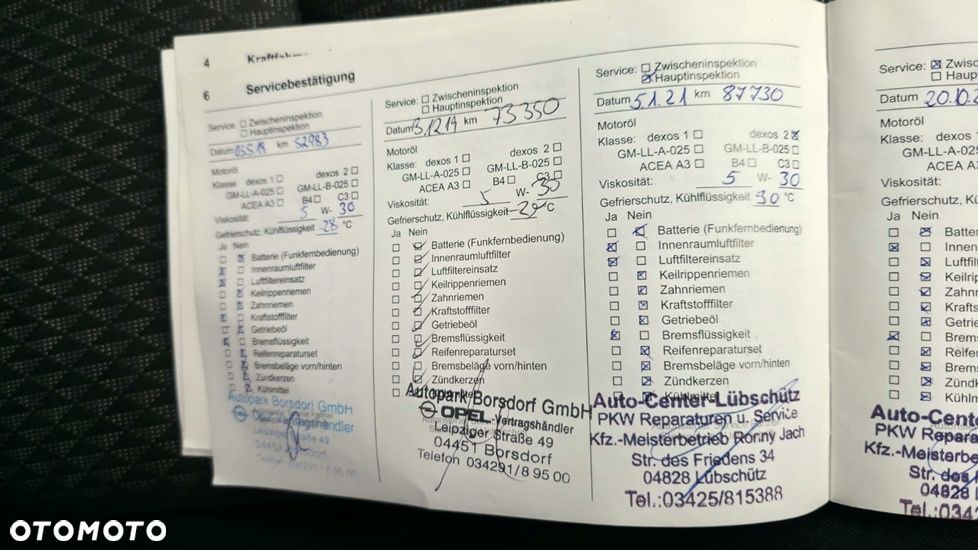 4 Kraftfahr
6 Servicebestätigung
Service: Zwischeninspektion
Hauptinspektion
Datum 03.5.18 km 52983
Motoröl
Klasse: dexos 1
GM-LL-A-025 GM-LL-B-025
ACEA A3 B4 C3
Viskosität: 5 W- 30
Gefrierschutz, Kühlflüssigkeit -28 °C
Ja Nein
Batterie (Funkfernbedienung)
Innenraumluftfilter
Luftfiltereinsatz
Keilrippenriemen
Zahnriemen
Kraftstofffilter
Getriebeöl
Bremsflüssigkeit
Reifenreparaturset
Bremsbeläge vorn/hinten
Zündkerzen
Kühlmittel
Autopark Borsdorf GmbH
Vertragshändler
Straße 49
04451 Borsdorf
Telefon 034291/8 95 00
Service: Zwischeninspektion
Hauptinspektion
Datum 3.12.19 km 73350
Motoröl
Klasse: dexos 1 dexos 2
GM-LL-A-025 GM-LL-B-025
ACEA A3 B4 C3
Viskosität: 5 W- 30
Gefrierschutz, Kühlflüssigkeit °C
Ja Nein
Batterie (Funkfernbedienung)
Innenraumluftfilter
Luftfiltereinsatz
Keilrippenriemen
Zahnriemen
Kraftstofffilter
Getriebeöl
Bremsflüssigkeit
Reifenreparaturset
Bremsbeläge vorn/hinten
Zündkerzen
Autopark Borsdorf GmbH
OPEL-Vertragshändler
Leipziger Straße 49
04451 Borsdorf
Telefon 034291/8 95 00
Service: Zwischeninspektion
Hauptinspektion
Datum 5.1.21 km 87730
Motoröl
Klasse: dexos 1 dexos 2
GM-LL-A-025 GM-LL-B-025
ACEA A3 B4 C3
Viskosität: 5 W- 30
Gefrierschutz, Kühlflüssigkeit 30 °C
Ja Nein
Batterie (Funkfernbedienung)
Innenraumluftfilter
Luftfiltereinsatz
Keilrippenriemen
Zahnriemen
Kraftstofffilter
Getriebeöl
Bremsflüssigkeit
Reifenreparaturset
Bremsbeläge vorn/hinten
Zündkerzen
Kühlmittel
Auto-Center Lübschütz
PKW Reparaturen u. Service
Kfz.-Meisterbetrieb Ronny Jach
Str. des Friedens 34
04828 Lübschütz
Tel.:03425/815388
Service: Zwisc
Haup
Datum 20.10.2
Motoröl
Klasse:
GM-LL-A
AC
Viskosität:
Gefrierschutz, Kü
Ja Nein
Batter
Innen
Luftfil
Keilri
Zahnri
Kraft
Getrie
Brems
Reifen
Brems
Zündk
Kühlm
Auto-Cente
PKW Repara
Kfz.-Meisterbe
Str. des
04828
Tel.:034
OTOMOTO